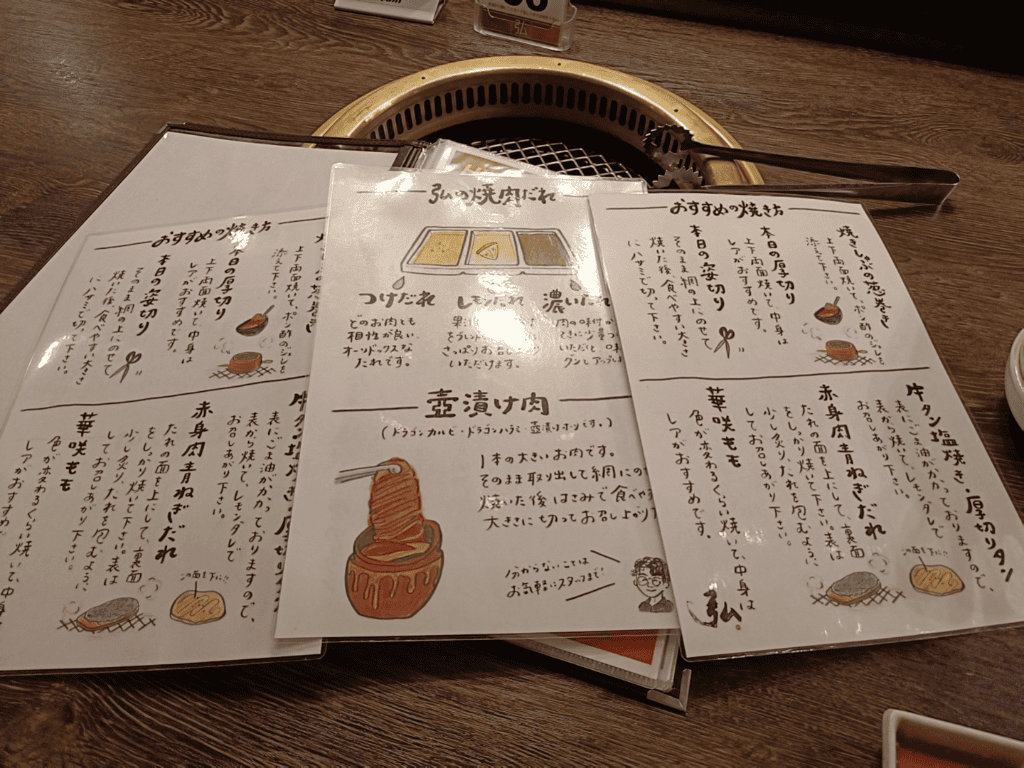 弘
おすすめの焼き方
上下両面焼いて、ポン酢のジュレを
添えて下さい。
本日の厚切り
上下両面焼いて、中身は
レアがおすすめです。
本日の姿切り
そのまま網の上にのせて
焼いた後、食べやすい大きさ
にハサミで切って下さい。
表にごま油がかかっておりますので、
表から焼いて、レモンダレで
お召しあがり下さい。
赤身肉青ねぎだれ
たれの面を上にして、裏面
をしっかり焼いて下さい。表は
少し炙り、たれを包むように、
してお召しあがり下さい。
華咲モモ
色がホクわるくらい焼いて、中身
レアがおすすめで
この面を下にき
弘の焼肉だれ
つけだれ
どのお肉とも
相性が良い
オーソドックスな
たれです。
レモンだれ
さっぱりお召し
いただけます。
濃いだれ
肉の味付が
いただと
グンとアップ
壺漬け肉
(ドラゴンカルビ・ドラゴンハラミ・壺漬けホソです。)
1本の大きいお肉です。
そのまま取出して網にの
焼いた後はさみで食べや
大きさに切ってお召し上がり下
分からないことは
お気軽にスタッフまで!
おすすめの焼き方
焼きしゃぶの葱巻き
上下両面焼いて、ポン酢のジュレを
添えて下さい。
本日の厚切り
上下両面焼いて、中身は
レアがおすすめです。
本日の姿切り
そのまま網の上にのせて
焼いた後、食べやすい大きさ
にハサミで切って下さい。
牛タン塩焼き・厚切りタン
表にごま油がかかっておりますので、
表から焼いて、レモンダレで
お召しあがり下さい。
赤身肉青ねぎだれ
たれの面を上にして、裏面
をしっかり焼いて下さい。表は
少し炙り、たれを包むように、
してお召しあがり下さい。
華咲モモ
色がホクわるくらい焼いて、中身は
レアがおすすめです。
この面を下にき
弘